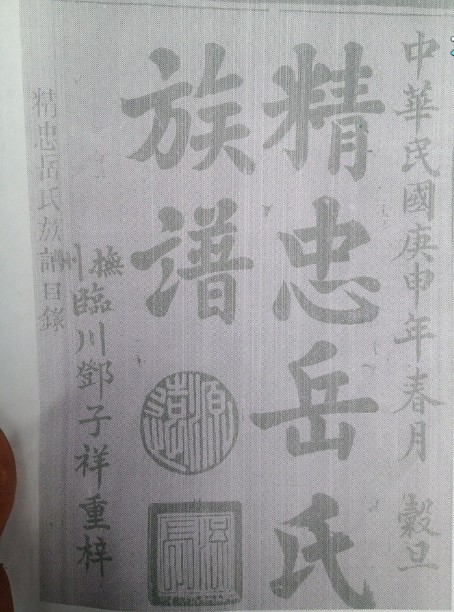 中華民國庚申年春月 穀旦
精忠岳氏
族譜
撫州臨川鄧子祥重梓
精忠岳氏族譜目錄